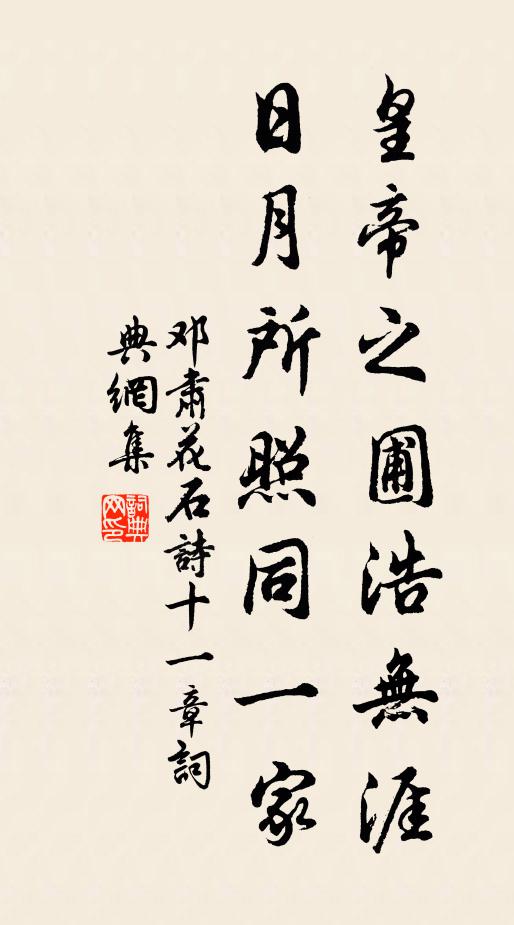 皇帝之圃浩無涯
日月所照同一家
邓肅花石詩十一章詞
典網集
詞典
网印